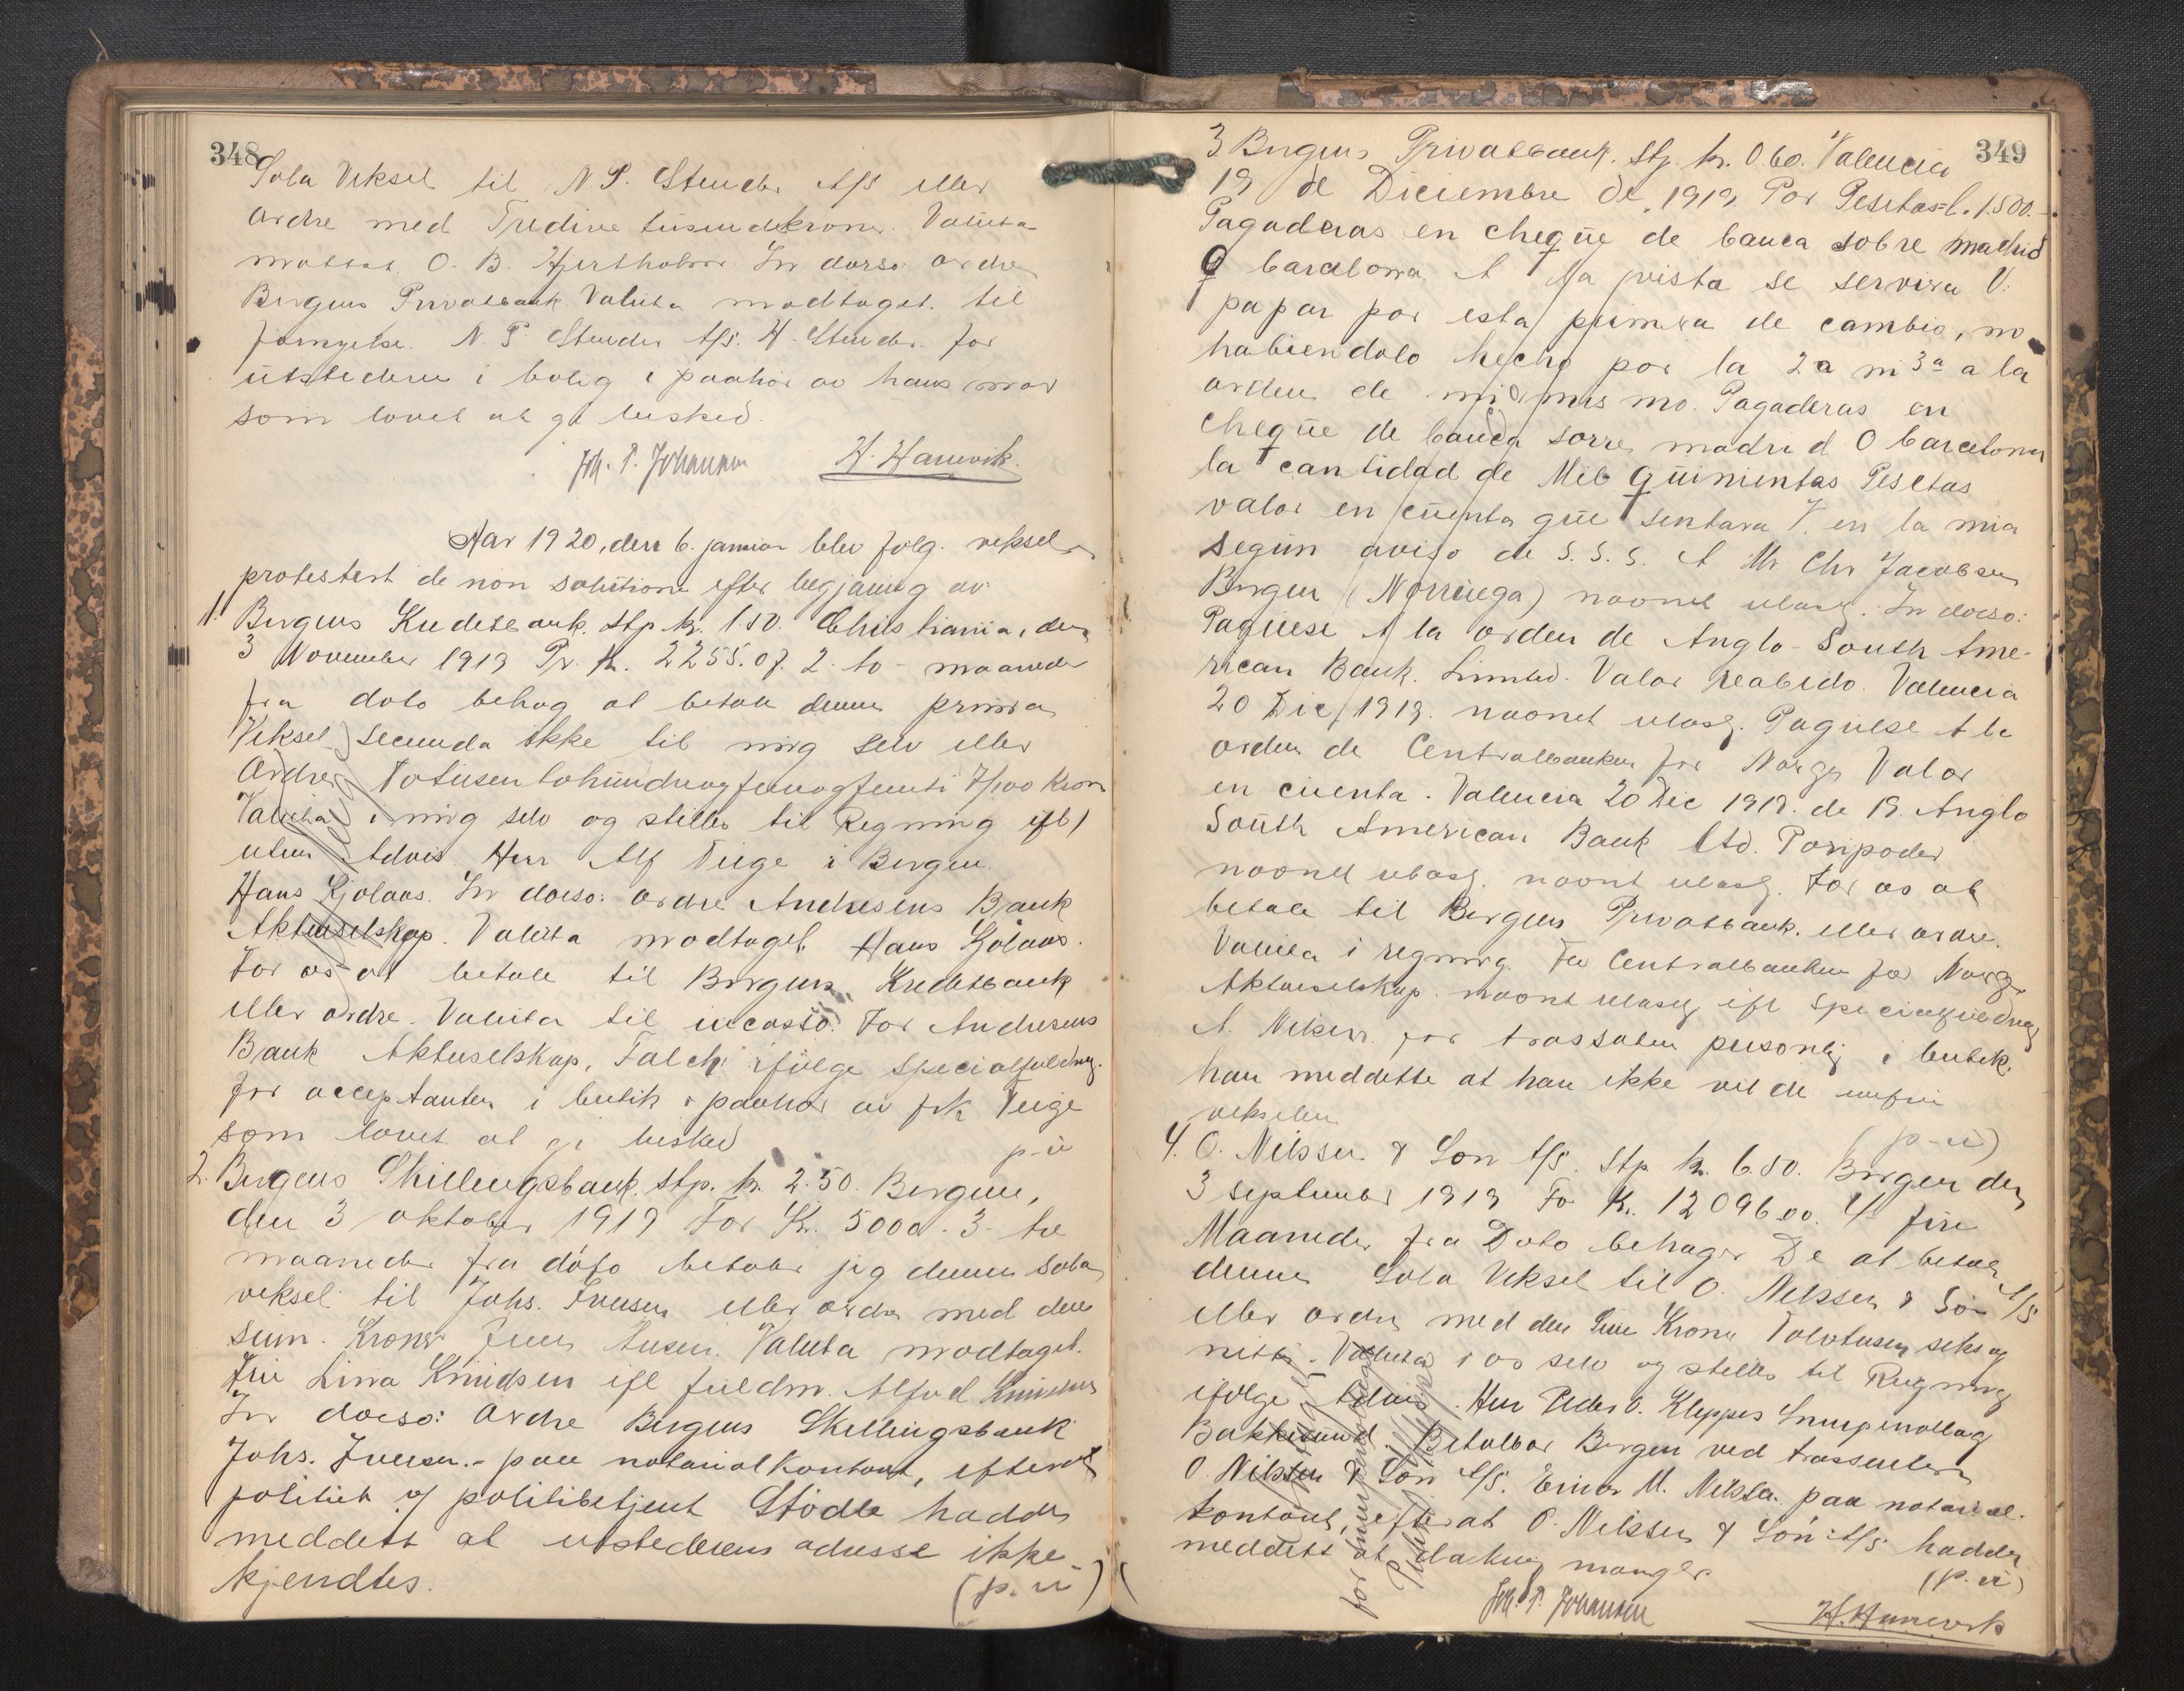 348
Sola Veksel til N P. Stender A/S eller
ordre med Tredive tusinde kroner. Valuta
mottat O. B. Hjertholm. In dorso: ordre
Bergens Privatbank. Valuta modtaget. til
fornyelse. N. P. Stender A/S. H. Stender. for
utstederen i bolig i paahør av hans mor
som lovet at gi besked.
Joh. P. Johannsen H. Hanevik.
Aar 1920, den 6. januar blev følg. veksel
protestert de non solutione efter begjæring av
1. Bergens Kreditbank. Stp. kr. 1.50. Christiania, den
3 November 1919 Pr. Kr. 2255.07. 2. to - maaneder
fra dato behag at betale denne prima
Veksel, secunda ikke til mig selv eller
Ordre Totusentohundreogfemogfemti 7/100 Kron
Valuta i mig selv og stilles til Regning ifl)
uten Advis Herr Alf Teige i Bergen.
Hans Kjølaas. In dorso: ordre Andresens Bank
Aktieselskap. Valuta modtaget Hans Kjølaas.
For os at betale til Bergens Kreditbank
eller ordre. Valuta til incasso. For Andresens
Bank Aktieselskap, Falch ifølge specialfuldm.
for acceptanten i butik i paahør av frk Teige
som lovet at gi besked
p-u
2. Bergens Skillingsbank. Stp. kr. 2.50. Bergen,
den 3 oktober 1919 For Kr. 5000. 3 - tre
maaneder fra dato betaler jeg denne Sola
veksel til Johs. Iversen eller ordre med den
sum. Kroner Fem tusen. Valuta modtaget.
Fru Lina Knudsen ifl fuldm. Alfred Knudsen
In dorso: Ordre Bergens Skillingsbank
Johs. Iversen. - paa notarialkontoret, efterat
politiet v/ politibetjent Stødle hadde
meddelt at utstederens adresse ikke
kjendtes.
(p. u)
349
3 Bergens Privatbank. Stp. kr. 0.60. Valencia
19 de Diciembre de 1919. Por Pesetas=l. 1.500.-
Pagaderas en cheque de banca sobre Madrid
O barcelona A la vista se servira V.
papar por esta primera de cambio, no
habiendolo hecho por la 2a ni 3a a la
orden de mi mismo. Pagaderas en
cheque de banca sorre madrid O barcelona
la cantidad de Mil quinientas Pesetas
valor en cuenta que sentara V. en la mia
segun aviso de S. S. S. A Mr Chr Jacobsen
Bergen (Norruega) navnet ulæsl. In dorso:
Paguese A la orden de Anglo-South Ame-
rican Bank. Limited. Valor reabido. Valencia
20 Dic 1919. navnet ulæsl. Paguese A la
orden de Centralbanken for Norge Valor
en cuenta. Valencia 20 Dic 1919. de 19. Anglo
South American Bank Ltd. Poripoder
navnet ulæsl. navnet ulæsl. For os at
betale til Bergens Privatbank. eller ordre.
Valuta i regning. For Centralbanken for Norge
Aktieselskap. navnet ulæselig ifl specialfuldmag
A. Nilsen. for trassaten personlig i butik.
han meddelte at han ikke vilde innfri
vekselen
(p-u)
4. O. Nilssen & Søn A/S. Stp. kr. 6.50. Bergen den
3 september 1919 For Kr. 12096.00. 4 fire
Maaneder fra Dato behager De at betale
denne Sola Veksel til O. Nilssen & Søn A/S
eller ordre med den Sum Kroner Tolvtusen seks og
nitti. Valuta i os selv og stilles til Regning
ifølge Advis. Herr Peder O. Kleppes Snurpenotlag
Bakkesund Betalbar Bergen ved trassenten
O. Nilssen & Søn A/S. Einar M. Nilssen. paa notarial-
kontoret, efterat O. Nilssen & Søn A/S hadde
meddelt at dækning mangler.
(p. u)
Joh. P. Johannsen H. Hanevik